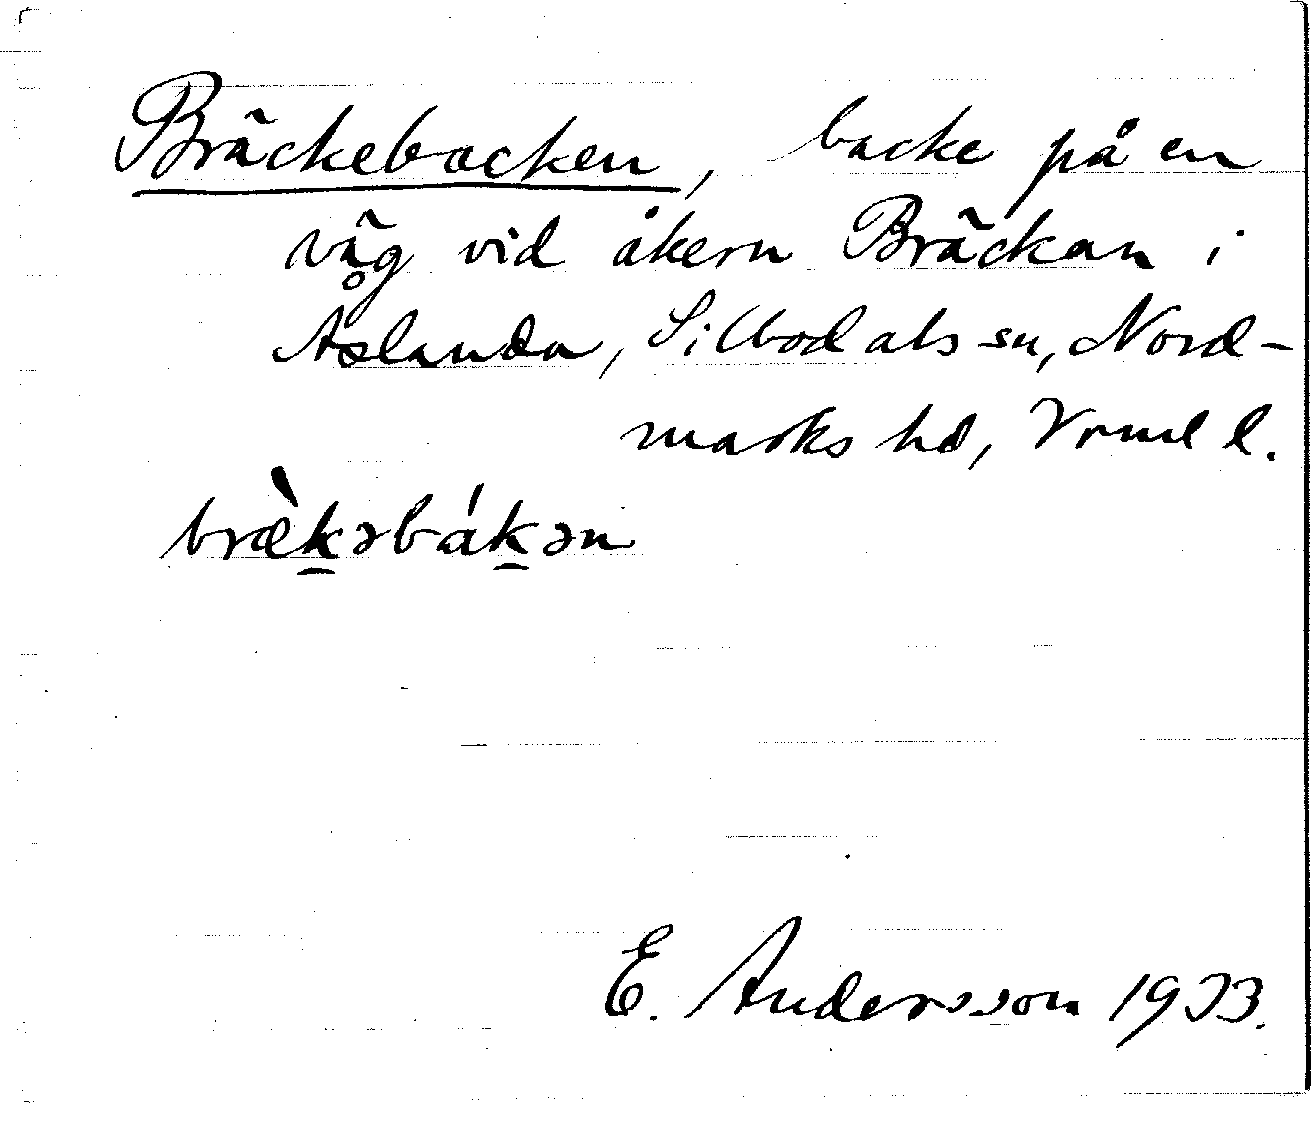 Bräckebacken, backe på en
väg vid åkern Bräckan i
Åslanda, Silbodals sn, Nord-
marks hd, Vrml l.
bræ̀k̯əbák̯ən
E. Andersson 1933.